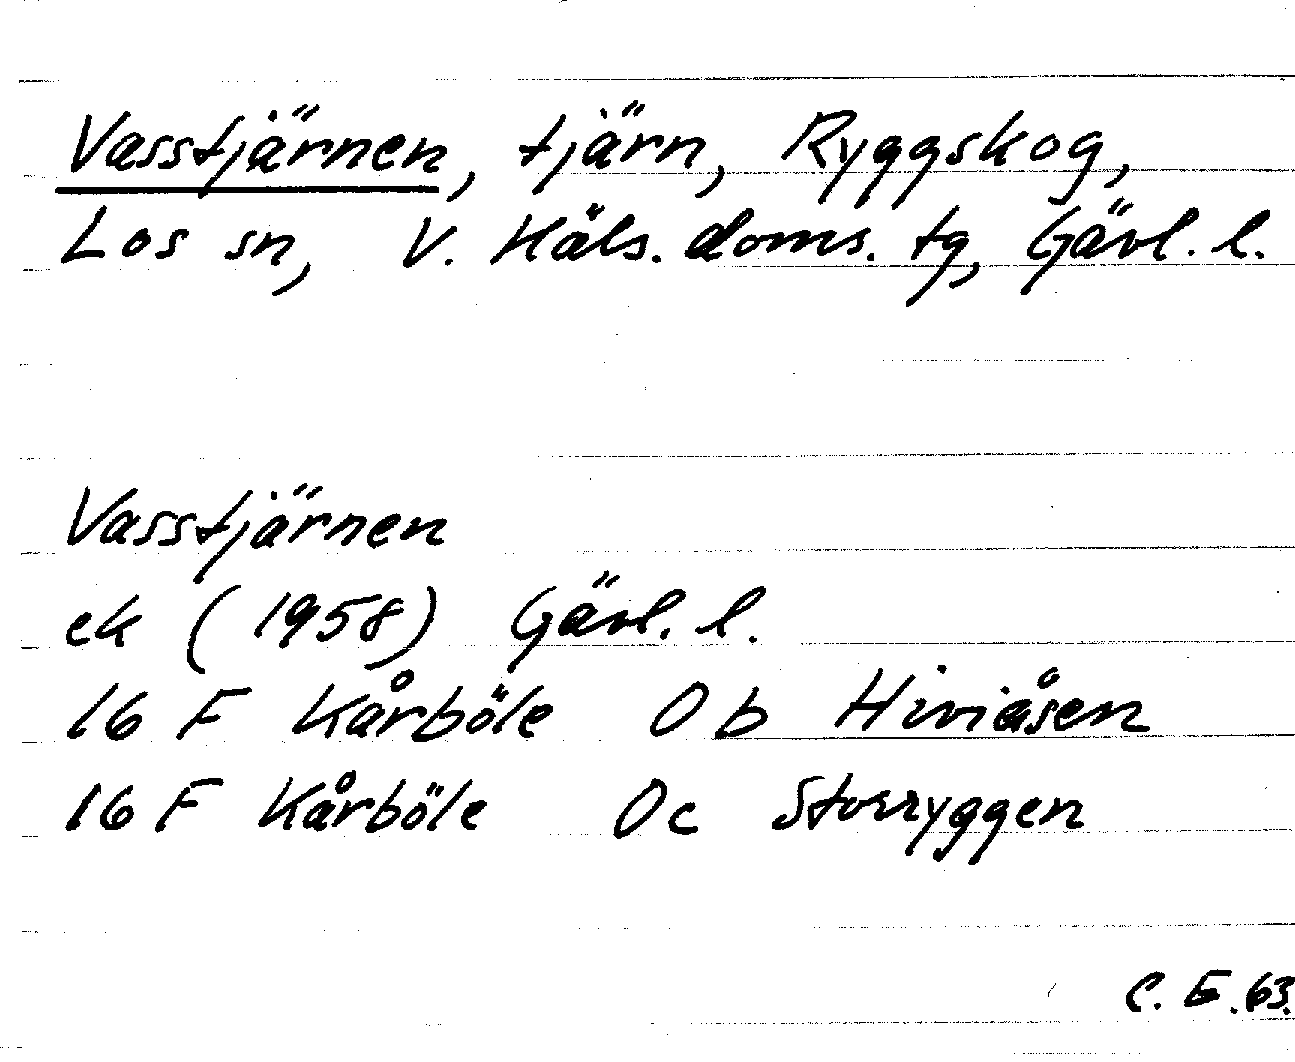 Vasstjärnen, tjärn, Ryggskog,
Los sn, V. Häls. doms. tg, Gävl. l.
Vasstjärnen
ek (1958) Gävl. l.
16 F Kårböle 0b Hiviåsen
16 F Kårböle 0c Storryggen
C. G. 63.